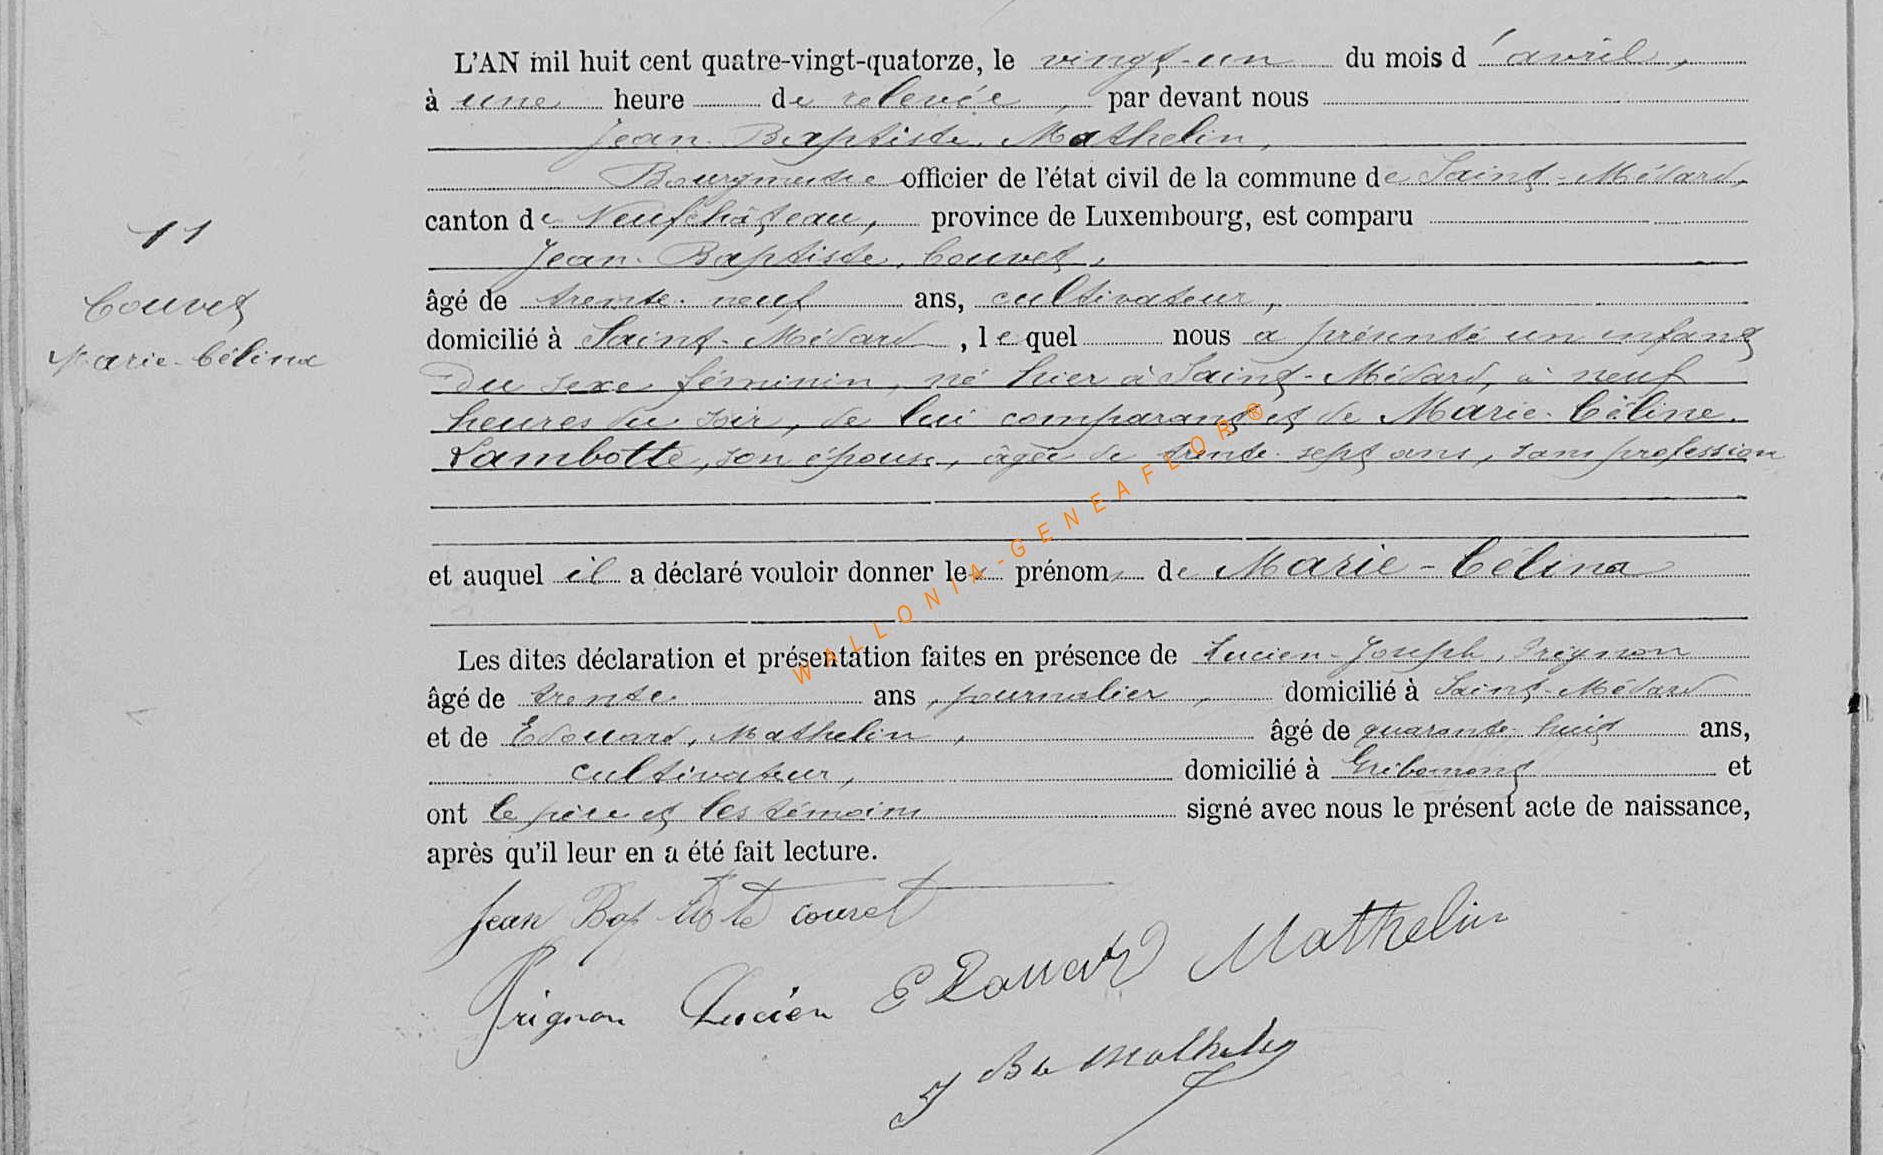 L'AN mil huit cent quatre-vingt-quatorze, le vingt-un du mois d'avril,
à une heure de relevée, par devant nous
Jean-Baptiste, Mathelin,
Bourgmestre officier de l'état civil de la commune de Saint-Médard,
canton de Neufchâteau, province de Luxembourg, est comparu
Jean-Baptiste, Couvet,
âgé de trente-neuf ans, cultivateur,
domicilié à Saint-Médard, lequel nous a présenté un enfant
du sexe féminin, né hier à Saint-Médard, à neuf
heures du soir, de lui comparant et de Marie-Céline
Lambotte, son épouse, âgée de trente-sept ans, sans profession
et auquel il a déclaré vouloir donner les prénoms de Marie-Célina
Les dites déclaration et présentation faites en présence de Lucien-Joseph, Prignon
âgé de trente ans, journalier, domicilié à Saint-Médard
et de Edouard, Mathelin, âgé de quarante-huit ans,
cultivateur, domicilié à Gribomont et
ont le père et les témoins signé avec nous le présent acte de naissance,
après qu'il leur en a été fait lecture.
11
Couvet
Marie-Célina
Jean Baptiste Couvet
Prignon Lucien Edouard Mathelin
J Bte Mathelin
WALLONIA-GENEAFLOR®